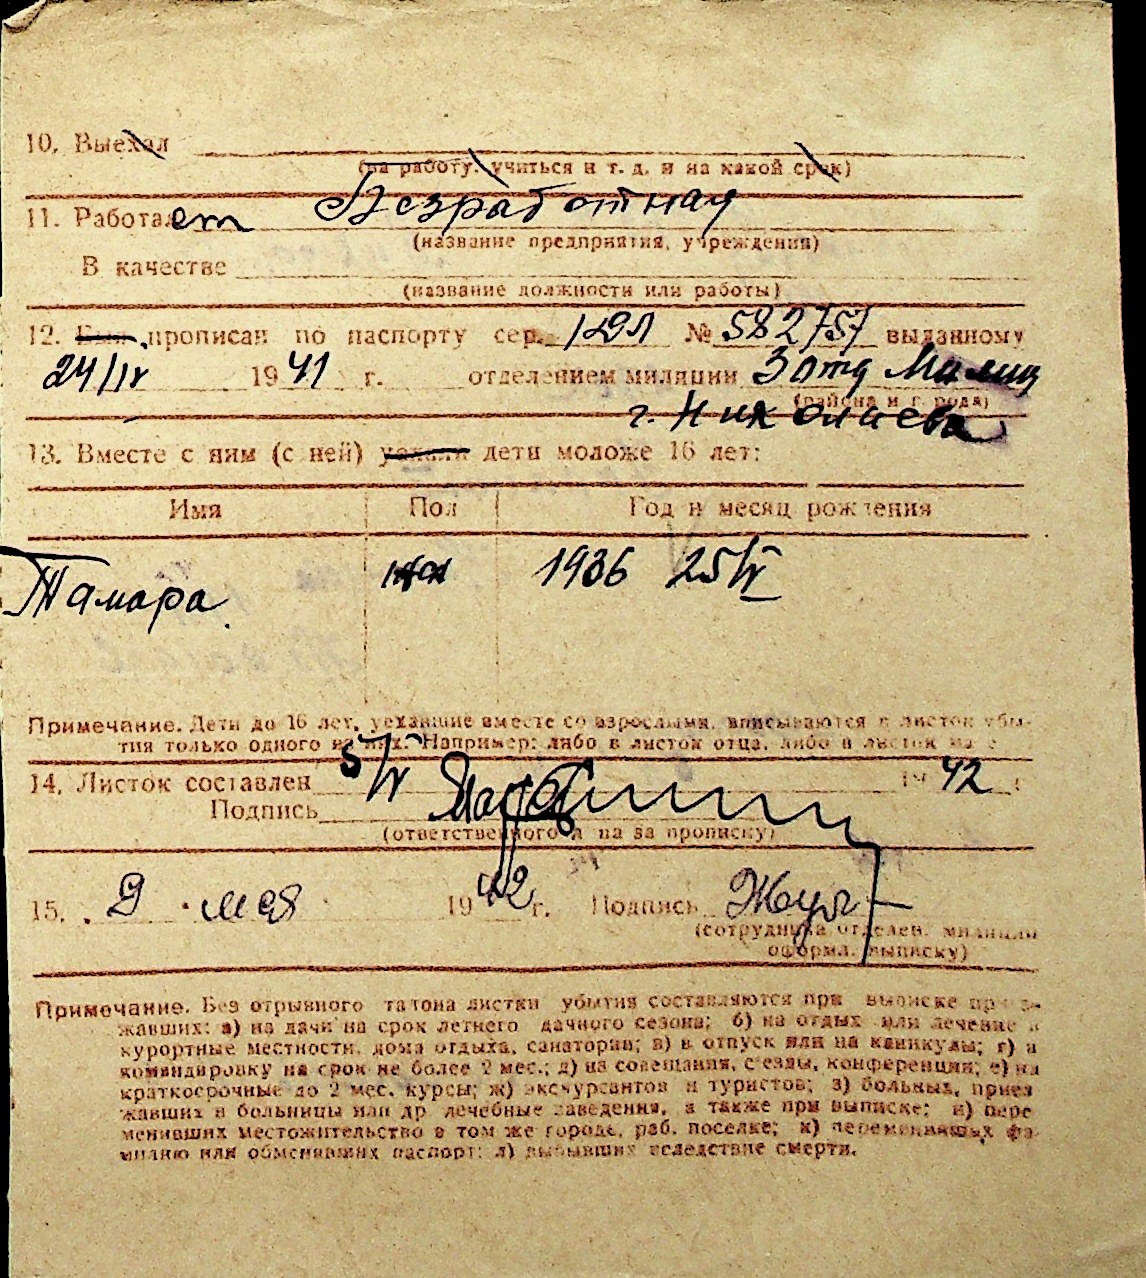 10. Выехал
(на работу. учиться и т. д. и на какой срок)
11. Работает Безработная
(название предприятия, учреждения)
В качестве
(название должности или работы)
12. Был прописан по паспорту сер. № 582757 выданному
24/IV 1941 г. отделением милиции 3 отд Милиц
(района и города)
г. Николаева
13. Вместе с ним (с ней) уехали дети моложе 16 лет:
Имя Пол Год и месяц рождения
Тамара. жен 1936 25/IV
Примечание. Дети до 16 лет, уехавшие вместе со взрослыми, вписываются в листок убы-
тия только одного из них. Например: либо в листок отца, либо в листок
14. Листок составлен 5/V 1942 г.
Подпись
(ответственного за прописку)
15. 9 мая 1942 г. Подпись
(сотрудника отделен. милиции
оформ. выписку)
Примечание. Без отрывного талона листки убытия составляются при выписке
жавших: а) на дачи на срок летнего дачного сезона; б) на отдых или лечение в
курортные местности, дома отдыха, санатории; в) в отпуск или на каникулы; г) в
командировку на срок не более 2 мес.; д) на совещания, с'езды, конференции; е) на
краткосрочные до 2 мес. курсы; ж) экскурсантов и туристов; з) больных, приез
жавших в больницы или др лечебные заведения, а также при выписке; и) пере
менивших местожительство в том же городе, раб. поселке; к) переменивших фа-
милию или обменявших паспорт; л) выбывших вследствие смерти.